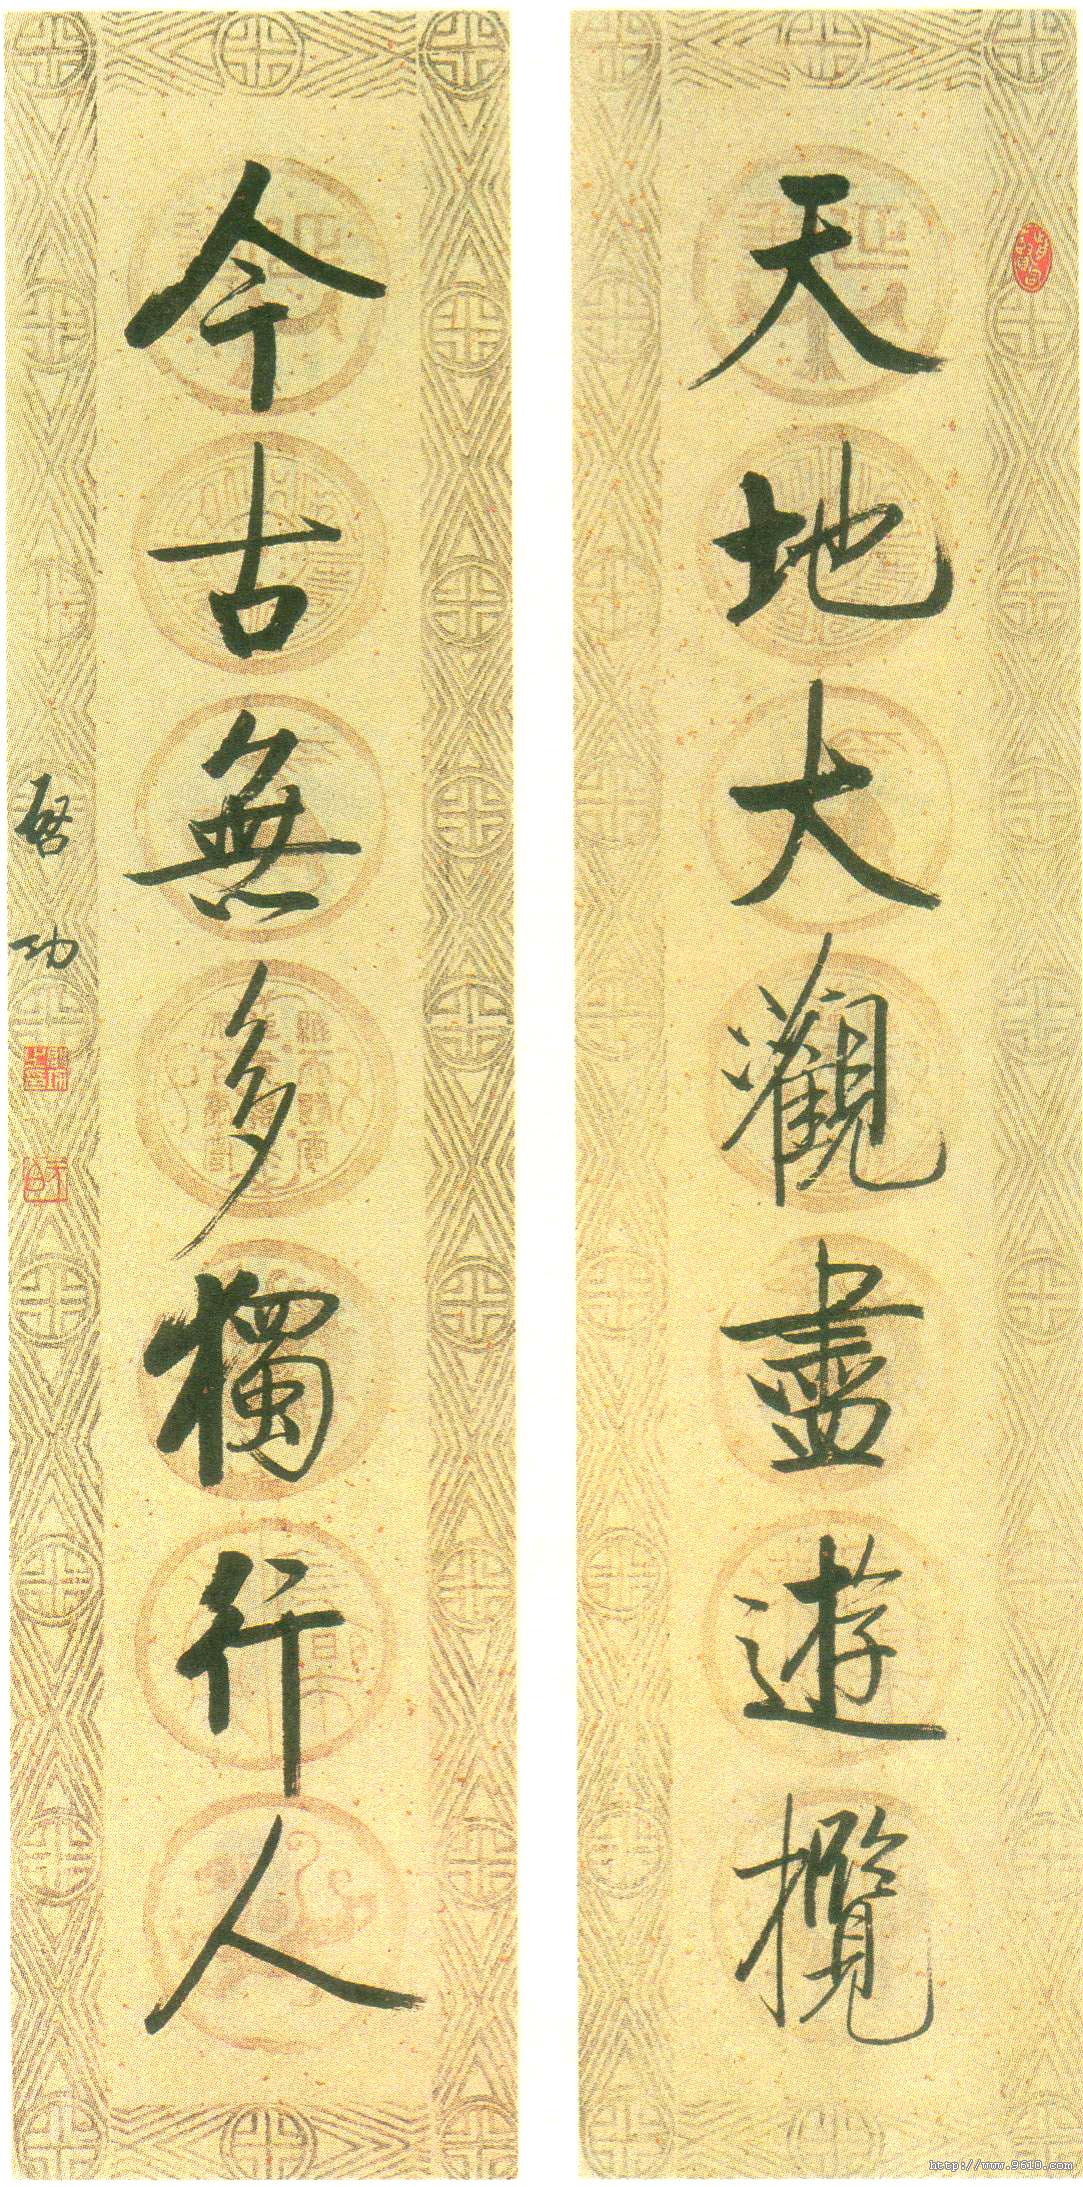 天地大觀盡遊攬
今古無多獨行人
啓功
http://www.9610.com